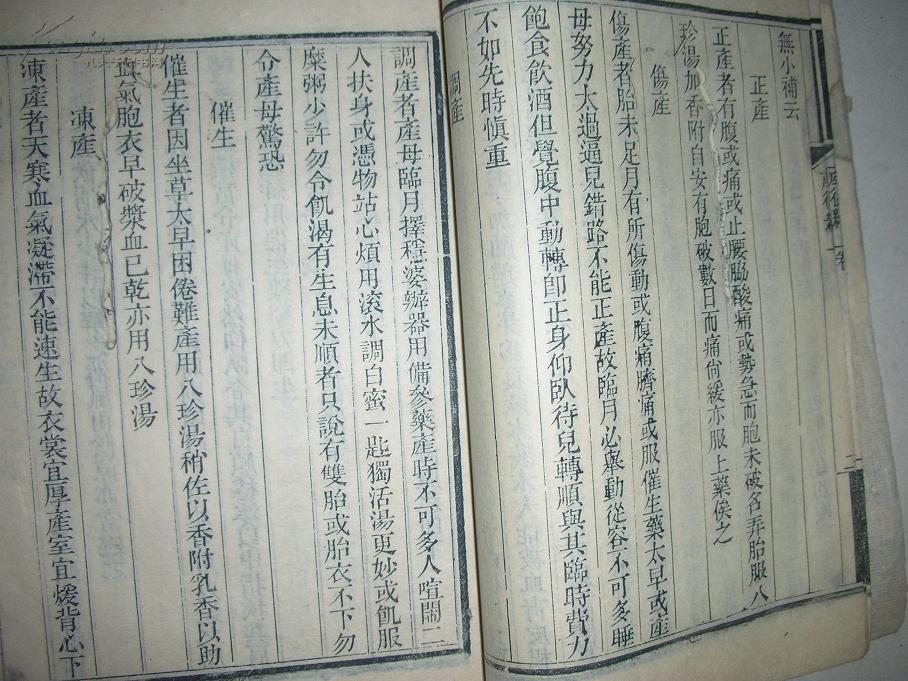 無小補云
正產
正產者有腹或痛或止腰脇酸痛或勢急而胞未破名弄胎服八
珍湯加香附自安有胞破數日而痛尙緩亦服上藥俟之
傷產
傷產者胎未足月有所傷動或腹痛臍痛或服催生藥太早或產
母努力太過逼兒錯路不能正產故臨月必舉動從容不可多睡
飽食飲酒但覺腹中動轉卽正身仰臥待兒轉順與其臨時費力
不如先時愼重
調產
調產者產母臨月擇穩婆辦器用備參藥產時不可多人喧鬧二
人扶身或憑物站心煩用滚水調白蜜一匙獨活湯更妙或飢服
糜粥少許勿令飢渴有生息未順者只說有雙胎或胎衣不下勿
令產母驚恐
催生
催生者因坐草太早困倦難產用八珍湯稍佐以香附乳香以助
血氣胞衣早破漿血已乾亦用八珍湯
凍產
凍產者天寒血氣凝滯不能速生故衣裳宜厚產室宜煖背心下